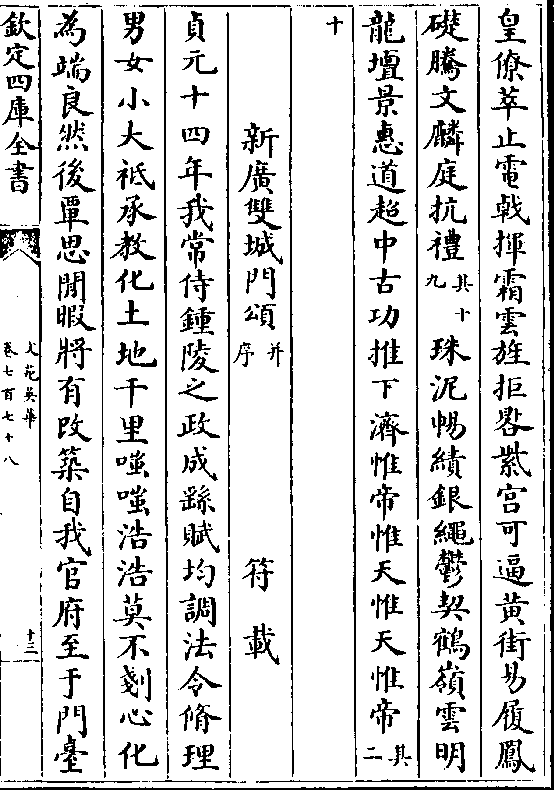 皇僚萃止電㦸揮霜雲旌拒晷紫宮可逼黄街易履鳳
礎騰文麟庭抗禮其十九珠泥暢績銀繩鬱契鶴嶺雲明
龍壇景惠道超中古功推下濟惟帝惟天惟天惟帝其二
十
新廣雙城門頌并序　符載
貞元十四年我常侍鍾陵之政成繇賦均調法令脩理
男女小大祗承教化土地千里嗤嗤浩浩莫不剗心化
為端良然後覃思閒暇將有改築自我官府至于門臺
欽定四庫全書　文苑英華卷七百七十八　十三